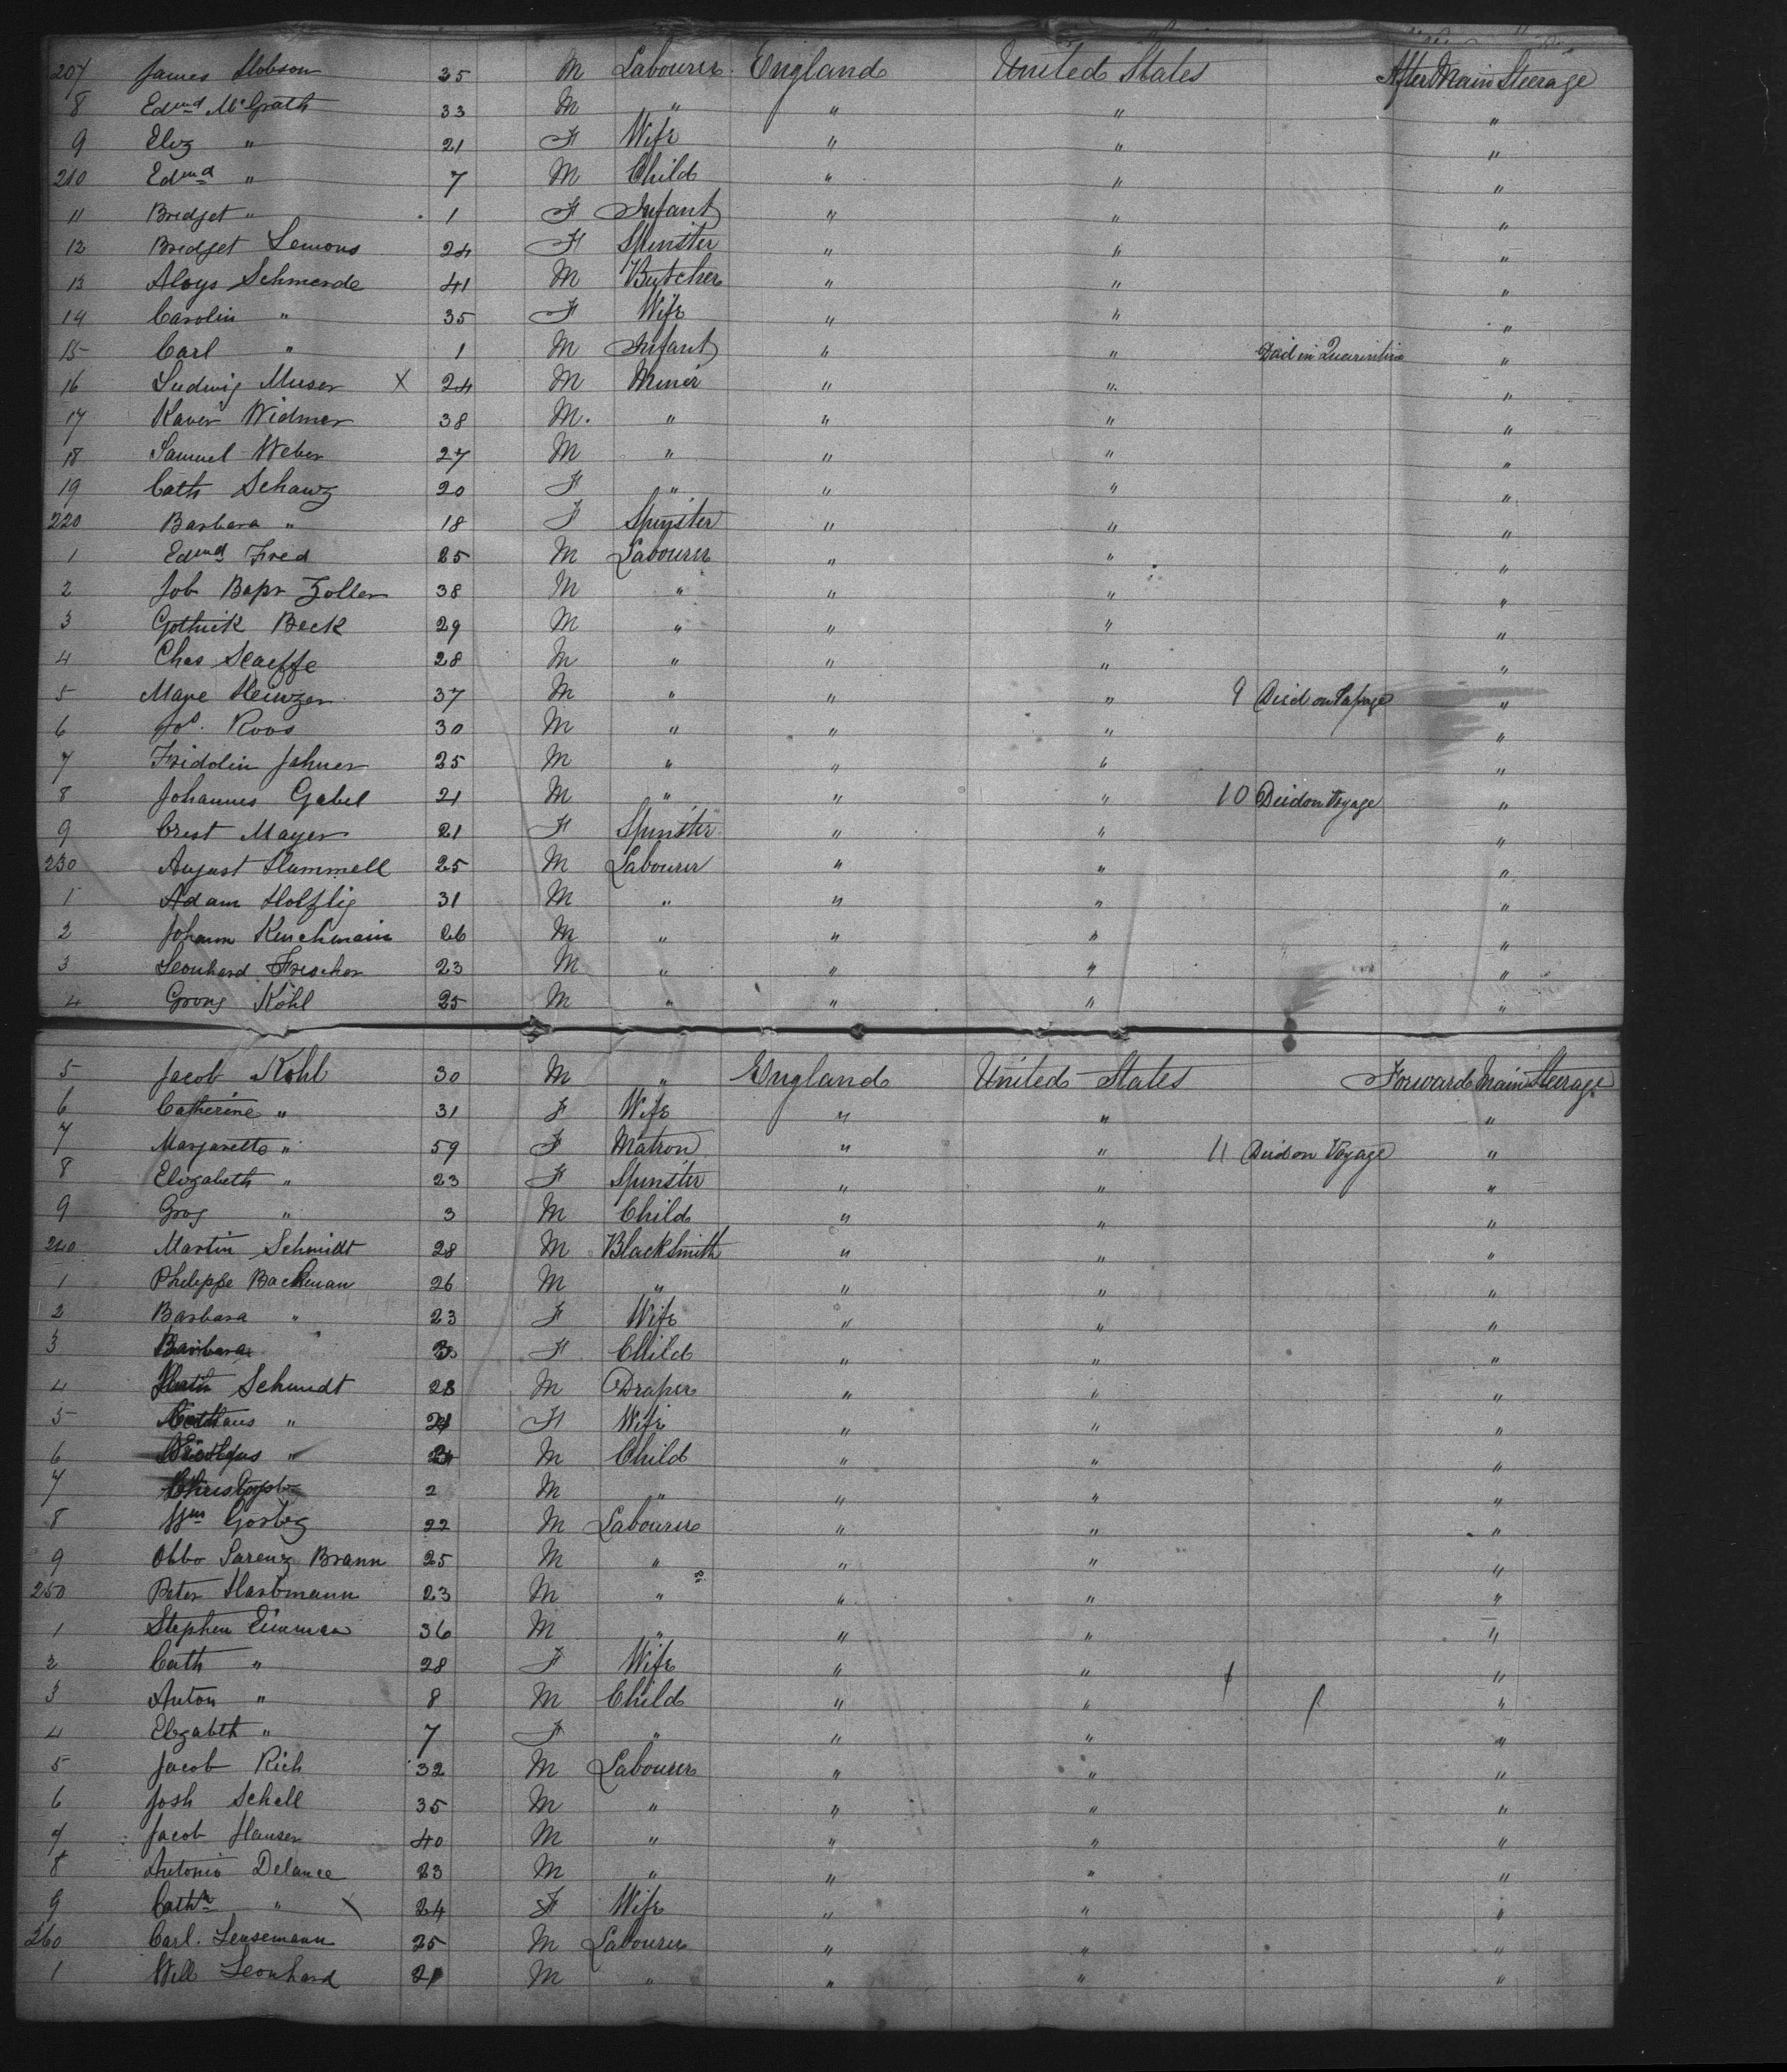 207 James Hobson 35 M Labourer England United States After Main Steerage
8 Edmd McGrath 33 M " " " "
9 Eliz " 21 F Wife " " "
210 Edmd " 7 M Child " " "
11 Bridget " 1 F Infant " " "
12 Bridget Lemons 24 F Spinster " " "
13 Aloys Schmerde 41 M Butcher " " "
14 Carolin " 35 F Wife " " "
15 Carl " 1 M Infant " " Died in Quarintine "
16 Ludwig Muser X 24 M Miner " " "
17 Xaver Widmer 38 M. " " " "
18 Samuel Weber 27 M " " " "
19 Cath Schawz 20 F " " " "
220 Barbara " 18 F Spinster " " "
1 Edmd Fred 25 M Labourer " " "
2 Job Bapr Zoller 38 M " " " "
3 Beck 29 M " " " "
4 Chas Scaeffe 28 M " " " "
5 Heinzer 37 M " " " 9 Died on Pasage "
6 Jos. Roos 30 M " " " "
7 Fridolin Jahner 25 M " " " "
8 Johannes Gabel 21 M " " " 10 Died on Voyage "
9 Crest Mayer 21 F Spinster " " "
230 August Hammell 25 M Labourer " " "
1 Adam Holflig 31 M " " " "
2 Johann 26 M " " " "
3 Leonhard Frischer 23 M " " " "
4 Grorg Kohl 25 M " " " "
5 Jacob Kohl 30 M " England United States Forward Main Steerage
6 Catherine " 31 F Wife " " "
7 Margarette " 59 F Matron " " 11 Died on Voyage "
8 Elizabeth " 23 F Spinster " " "
9 Grog " 3 M Child " " "
240 Martin Schmidt 28 M Blacksmith " " "
1 Philippe Backman 26 M " " " "
2 Barbara " 23 F Wife " " "
3 Barbara F Child " " "
4 Schmidt 28 M Draper " " "
5 " F Wife " " "
6 " M Child " " "
7 2 M " " " "
8 Wm Gosbez 22 M Labourer " " "
9 Obbo Sarenz Brann 25 M " " " "
250 Peter Harbmann 23 M " " " "
1 Stephen 36 M " " " "
2 Cath " 28 F Wife " " "
3 Anton " 8 M Child " " "
4 Elizabth " 7 F " " " "
5 Jacob Rich 32 M Labourer " " "
6 Josh Schell 35 M " " " "
7 Jacob Hauser 40 M " " " "
8 Antonio Delance 23 M " " " "
9 Cathr " X 24 F Wife " " "
260 Carl. Lensemann 25 M Labourer " " "
1 Will Leonhard 21 M " " " "